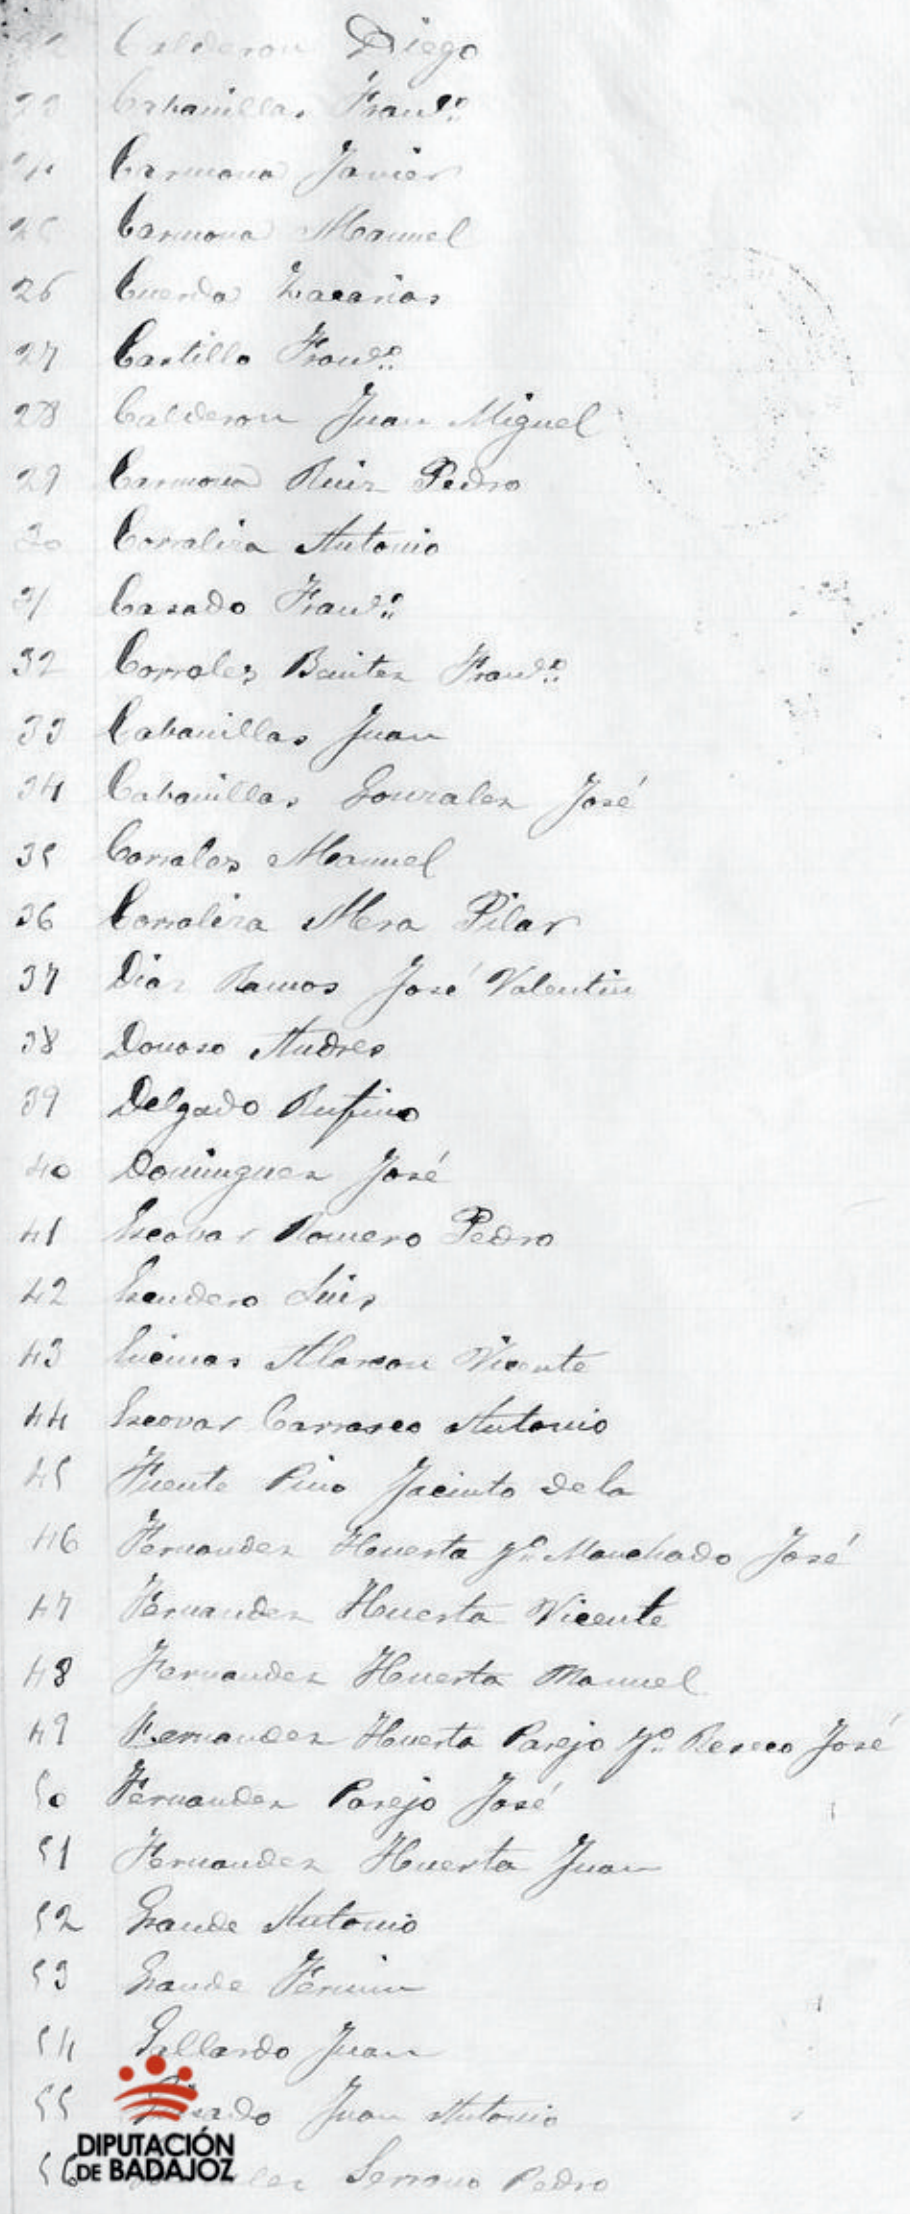 22 Calderon Diego
23 Cabanillas Franco.
24 Carmona Javier
25 Carmona Manuel
26 Cuerda Zacarias
27 Castillo Franco.
28 Calderon Juan Miguel
29 Carmona Ruiz Pedro
30 Corraliza Antonio
31 Casado Franco.
32 Corrales Benitez Franco.
33 Cabanillas Juan
34 Cabanillas Gonzalez José
35 Corrales Manuel
36 Corraliza Mera Pilar
37 Diaz Ramos José Valentin
38 Donoso Andres
39 Delgado Rufino
40 Dominguez José
41 Escobar Romero Pedro
42 Escudero Luis
43 Encinas Alarcon Vicente
44 Escovar Carrasco Antonio
45 Fuente Pino Jacinto de la
46 Fernandez Huerta yo. Manchado José
47 Fernandez Huerta Vicente
48 Fernandez Huerta Manuel
49 Fernandez Huerta Parejo yo. José
50 Fernandez Parejo José
51 Fernandez Huerta Juan
52 Grande Antonio
53 Grande Fermin
54 Gallardo Juan
55 Juan Antonio
56 Serrano Pedro
DIPUTACIÓN
DE BADAJOZ